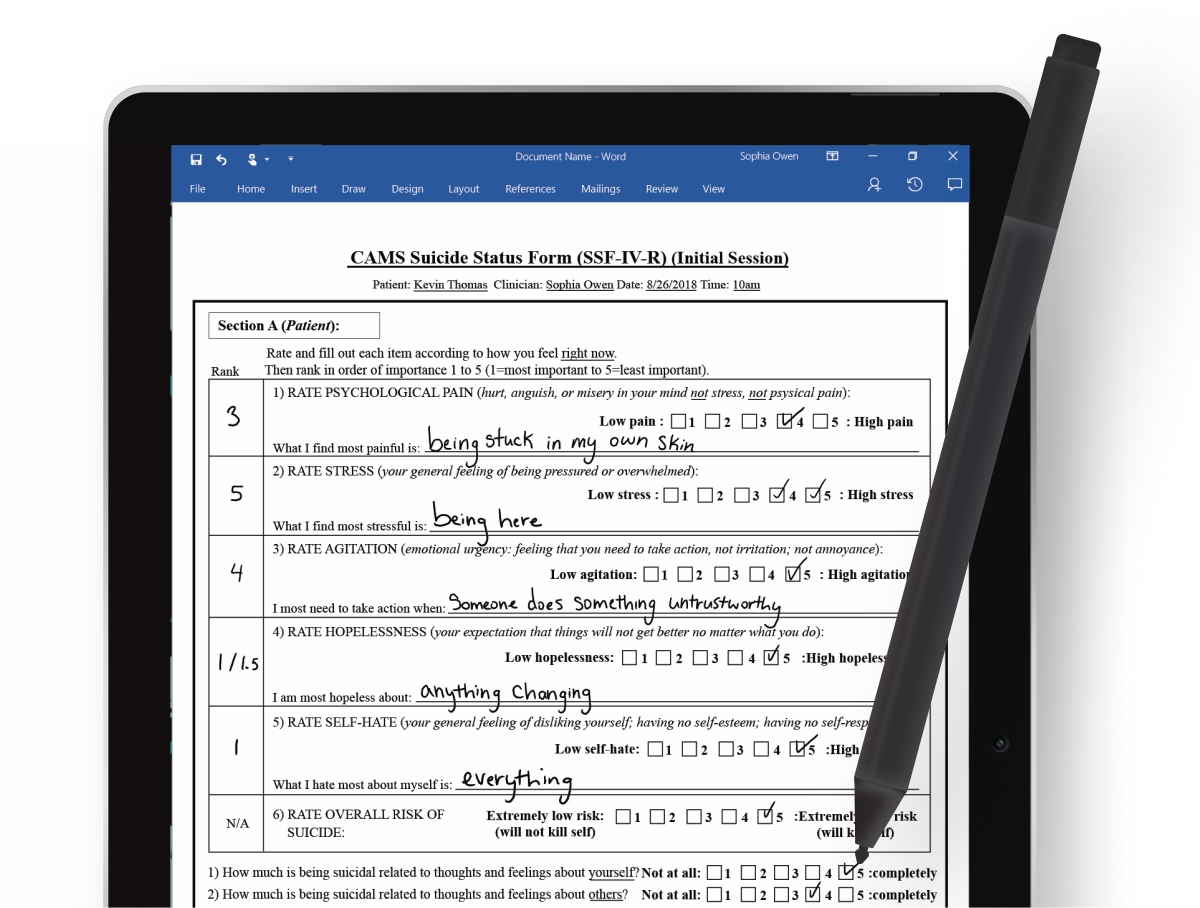 Document Name - Word
Sophia Owen
File Home Insert Draw Design Layout References Mailings Review View
CAMS Suicide Status Form (SSF-IV-R) (Initial Session)
Patient: Kevin Thomas Clinician: Sophia Owen Date: 8/26/2018 Time: 10am
Section A (Patient):
Rate and fill out each item according to how you feel right now.
Rank Then rank in order of importance 1 to 5 (1=most important to 5=least important).
3
1) RATE PSYCHOLOGICAL PAIN (hurt, anguish, or misery in your mind not stress, not psysical pain):
Low pain : 1 2 3 4 5 : High pain
What I find most painful is: being stuck in my own skin
5
2) RATE STRESS (your general feeling of being pressured or overwhelmed):
Low stress : 1 2 3 4 5 : High stress
What I find most stressful is: being here
4
3) RATE AGITATION (emotional urgency: feeling that you need to take action, not irritation; not annoyance):
Low agitation: 1 2 3 4 5 : High agitation
I most need to take action when: Someone does something untrustworthy
1/1.5
4) RATE HOPELESSNESS (your expectation that things will not get better no matter what you do):
Low hopelessness: 1 2 3 4 5 :High
I am most hopeless about: anything changing
1
5) RATE SELF-HATE (your general feeling of disliking yourself; having no self-esteem; having no
Low self-hate: 1 2 3 4 5 :High
What I hate most about myself is: everything
N/A
6) RATE OVERALL RISK OF Extremely low risk: 1 2 3 4 5 risk
SUICIDE: (will not kill self) (will
1) How much is being suicidal related to thoughts and feelings about yourself? Not at all: 1 2 3 4 5 :completely
2) How much is being suicidal related to thoughts and feelings about others? Not at all: 1 2 3 4 5 :completely